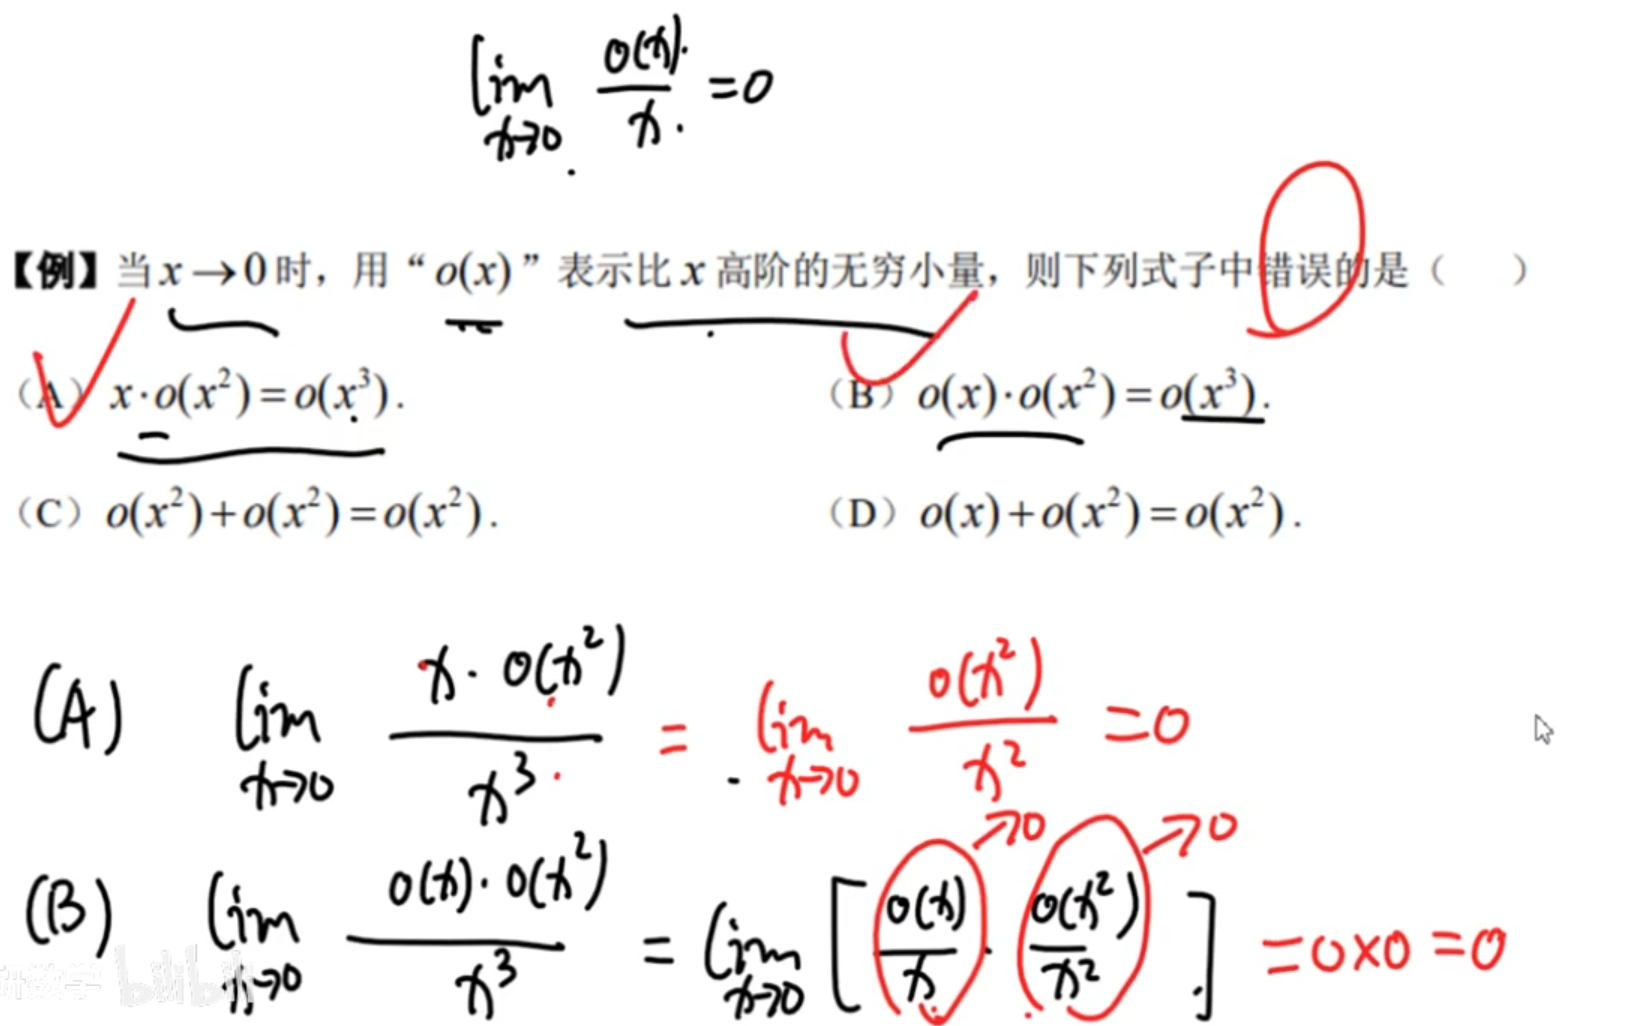 lim o(x)/x =0
x→0
【例】当 x→0 时，用“o(x)”表示比 x 高阶的无穷小量，则下列式子中错误的是（　　）
（A）x·o(x²)=o(x³).　（B）o(x)·o(x²)=o(x³).
（C）o(x²)+o(x²)=o(x²).　（D）o(x)+o(x²)=o(x²).
(A) lim x→0 x·o(x²)/x³ = lim x→0 o(x²)/x² =0
→0 →0
(B) lim x→0 o(x)·o(x²)/x³ = lim x→0 [o(x)/x · o(x²)/x²] =0×0=0
研数学 bilibili